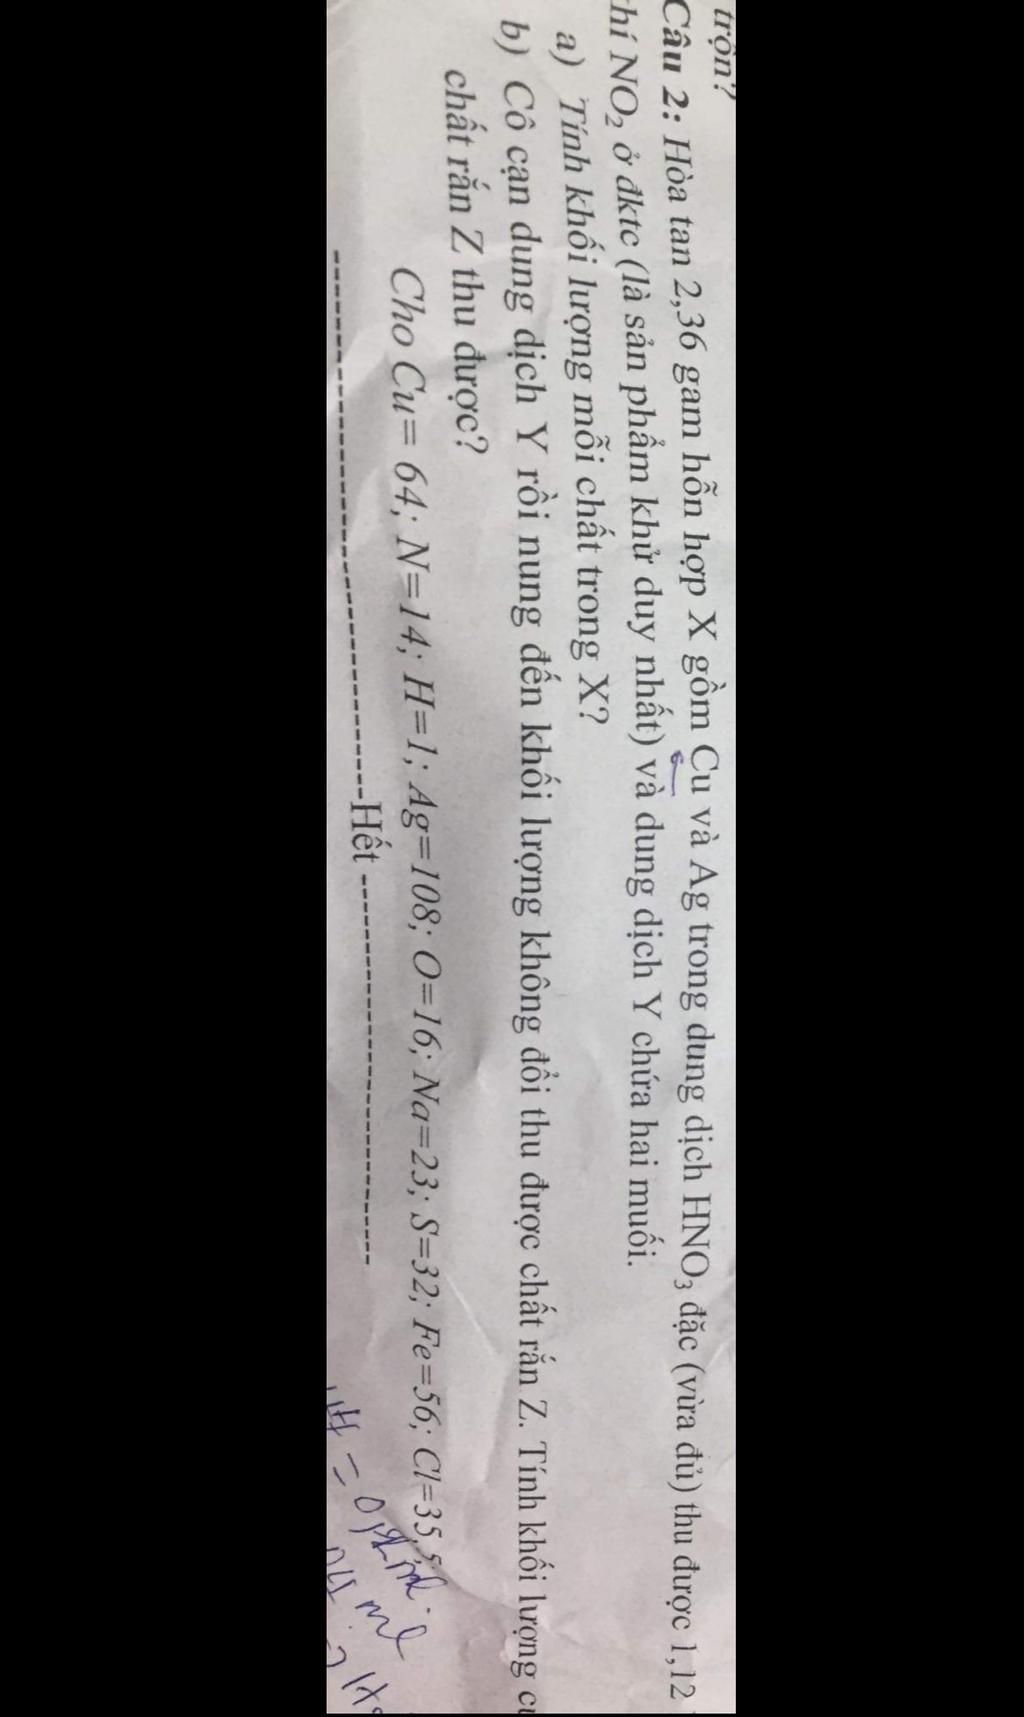 trộn?
Câu 2: Hòa tan 2,36 gam hỗn hợp X gồm Cu và Ag trong dung dịch HNO₃ đặc (vừa đủ) thu được 1,12
khí NO₂ ở đktc (là sản phẩm khử duy nhất) và dung dịch Y chứa hai muối.
a) Tính khối lượng mỗi chất trong X?
b) Cô cạn dung dịch Y rồi nung đến khối lượng không đổi thu được chất rắn Z. Tính khối lượng
chất rắn Z thu được?
Cho Cu= 64; N=14; H=1; Ag=108; O=16; Na=23; S=32; Fe=56; Cl=35,5
-----Hết-----